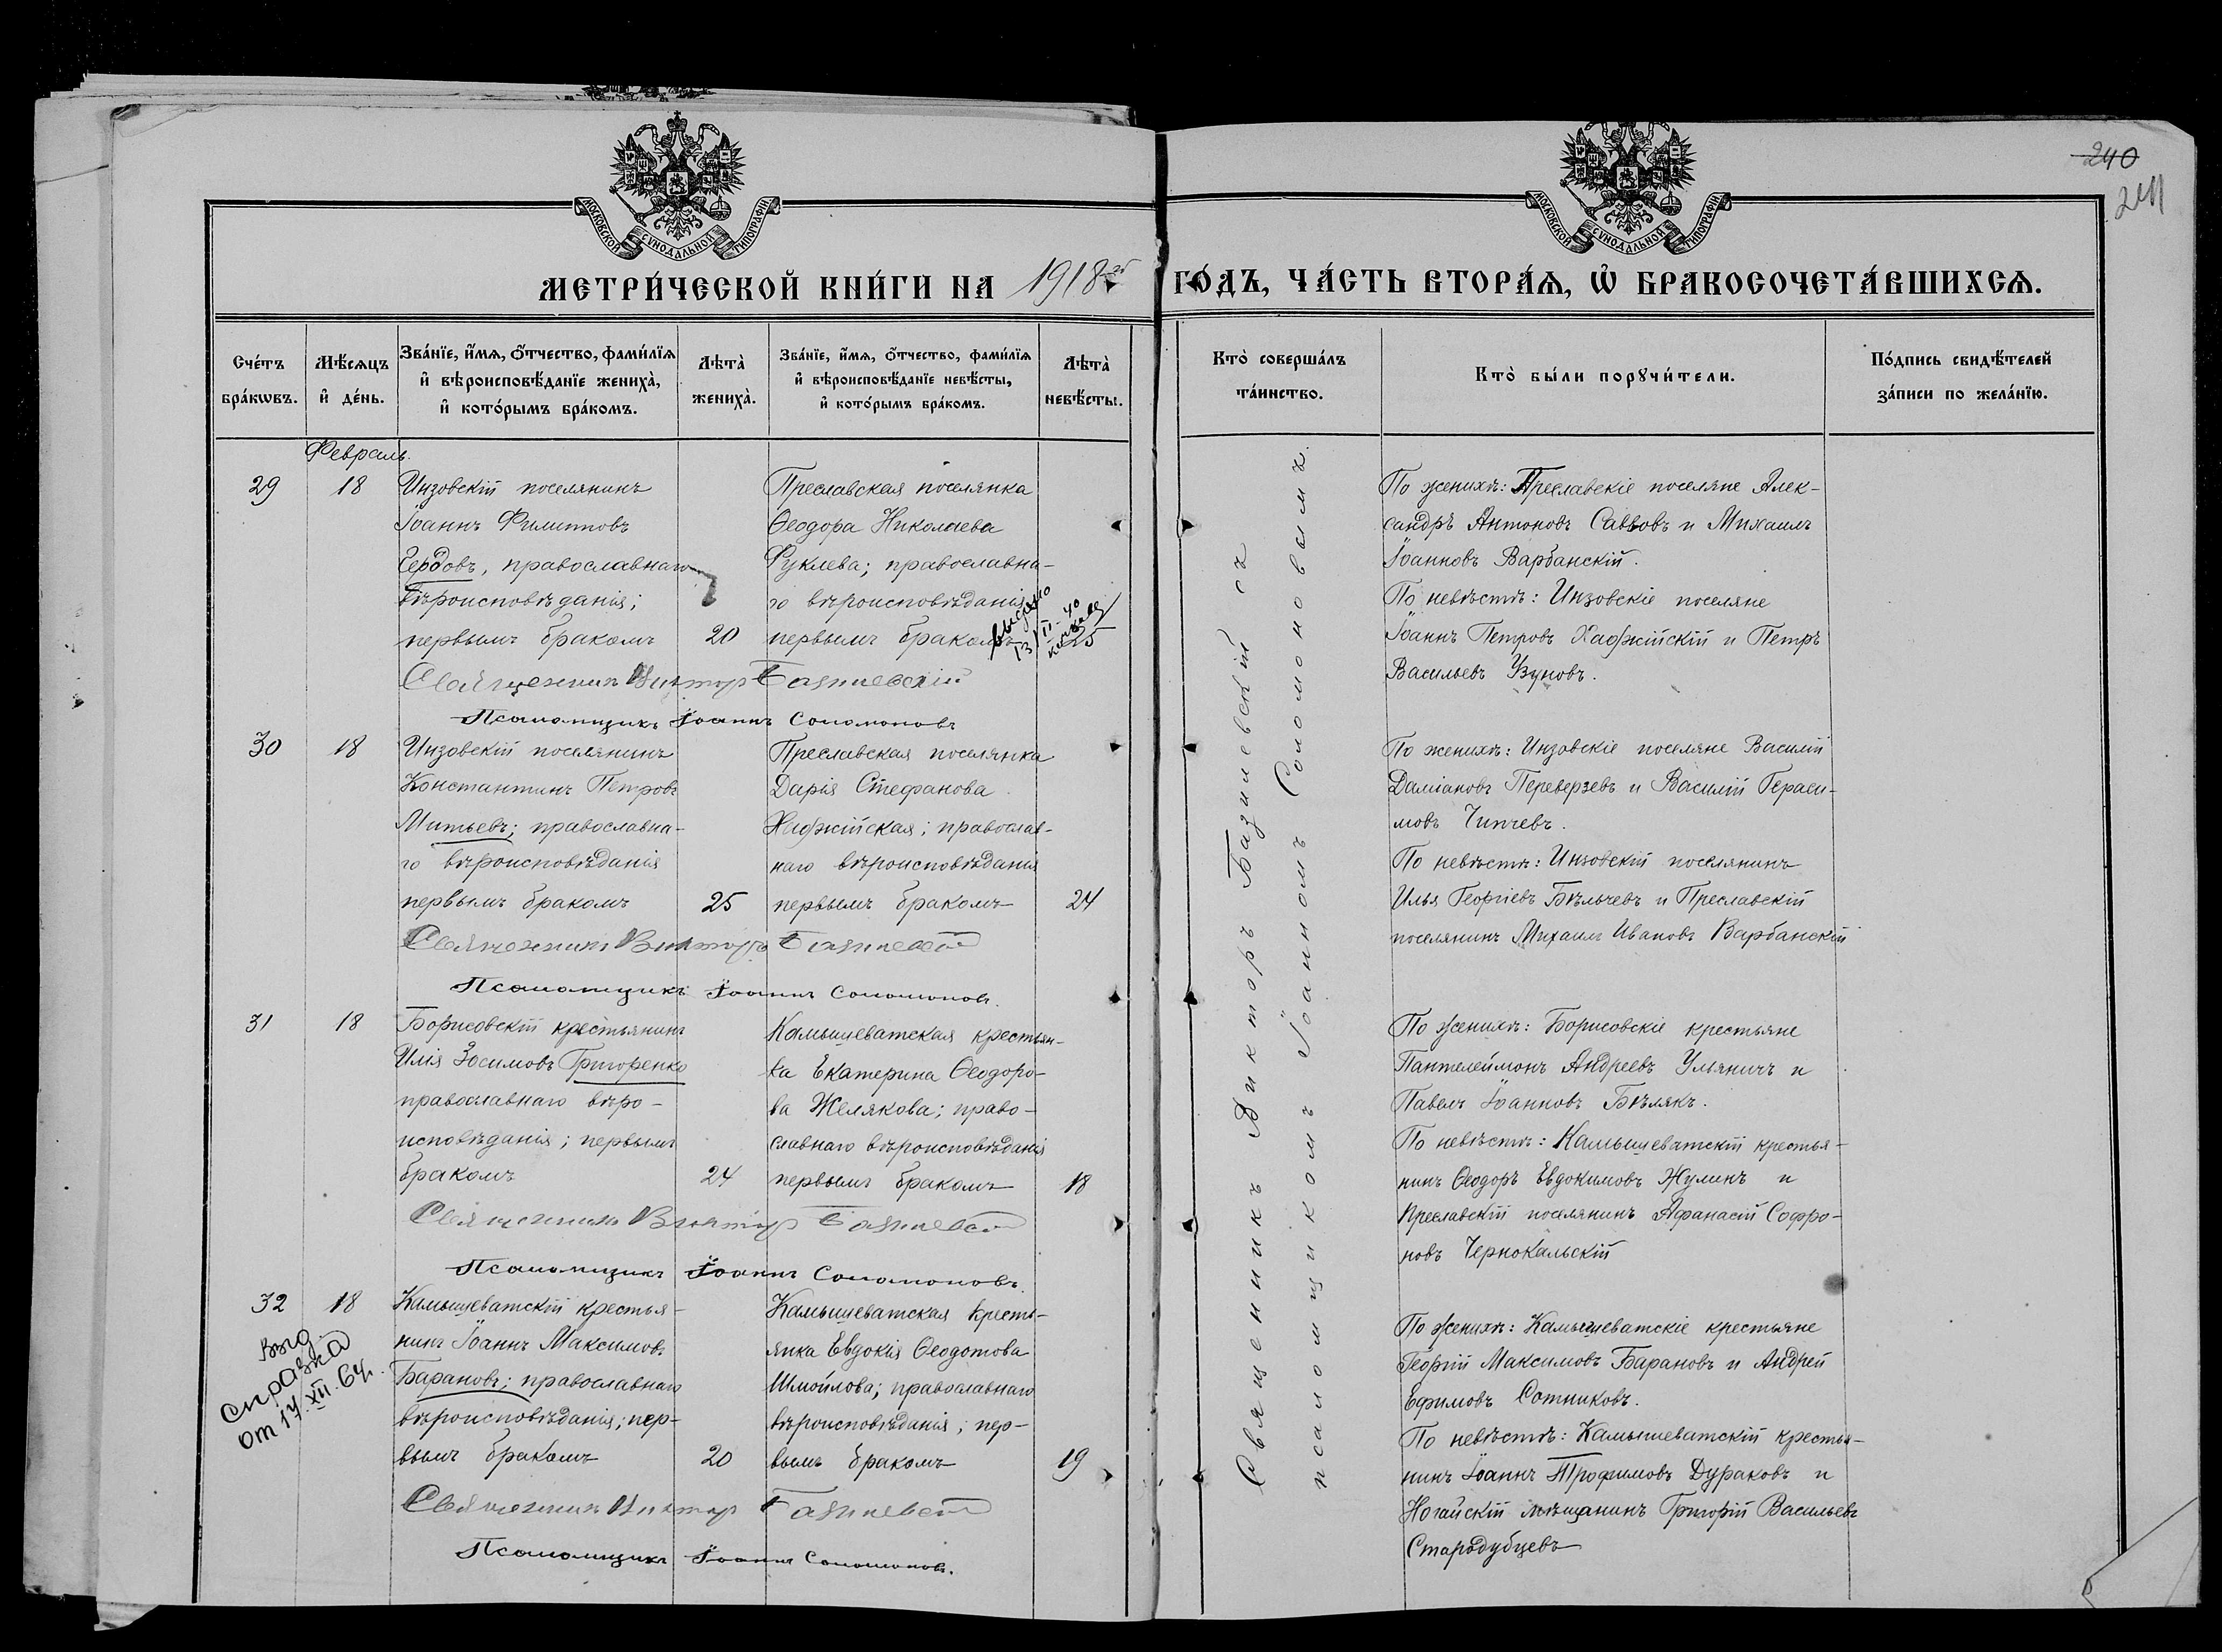 240
241
МОСКОВСКОЙ СѴНОДАЛЬНОЙ ТИПОГРАФІИ
МОСКОВСКОЙ СѴНОДАЛЬНОЙ ТИПОГРАФІИ
МЕТРИ́ЧЕСКОЙ КНИ́ГИ НА 1918 ГО́ДЪ, ЧА́СТЬ ВТОРА́Ѧ, Ѡ҆ БРАКОСОЧЕТА́ВШИХСѦ.
Сче́тъ
бра́кѡвъ.
Мѣ́сѧцъ
и҆ де́нь.
Зва́нїе, и҆́мѧ, о҆́тчество, фами́лїѧ
и҆ вѣроисповѣ́данїе жениха̀,
и҆ кото́рымъ бра́комъ.
Лѣта̀
жениха̀.
Зва́нїе, и҆́мѧ, о҆́тчество, фами́лїѧ
и҆ вѣроисповѣ́данїе невѣ́сты,
и҆ кото́рымъ бра́комъ.
Лѣта̀
невѣ́сты.
Кто̀ соверша́лъ
та́инство.
Кто̀ бы́ли порꙋчи́тели.
По́дпись свидѣ́телей
за́писи по жела́нїю.
Февраль.
29
18
Инзовскій поселянинъ
Іоаннъ Филипповъ
Гердовъ, православнаго
вѣроисповѣданія;
первымъ бракомъ
20
Преславская поселянка
Ѳеодора Николаева
Фуклева; православна-
го вѣроисповѣданія
первымъ бракомъ
25
выдано
13/II-40
Священникъ Викторъ Базилевскій
Псаломщикъ Іоаннъ Соломоновъ
По женихѣ: Преславскіе поселяне Алек-
сандръ Антоновъ Саввовъ и Михаилъ
Іоанновъ Варбанскій.
По невѣстѣ: Инзовскіе поселяне
Іоаннъ Петровъ Хаджійскій и Петръ
Васильевъ Узуновъ.
30
18
Инзовскій поселянинъ
Константинъ Петровъ
Митьевъ; православна-
го вѣроисповѣданія
первымъ бракомъ
25
Преславская поселянка
Дарія Стефанова
Хаджійская; православ-
наго вѣроисповѣданія
первымъ бракомъ
24
Священникъ Викторъ Базилевскій
Псаломщикъ Іоаннъ Соломоновъ.
По женихѣ: Инзовскіе поселяне Василій
Даміановъ Переверзевъ и Василій Гераси-
мовъ Чипчевъ.
По невѣстѣ: Инзовскій поселянинъ
Илья Георгіевъ Бѣльчевъ и Преславскій
поселянинъ Михаилъ Ивановъ Варбанскій
31
18
Борисовскій крестьянинъ
Илія Зосимовъ Григоренко
православнаго вѣро-
исповѣданія; первымъ
бракомъ
24
Камышеватская крестьян-
ка Екатерина Ѳеодоро-
ва Желякова; право-
славнаго вѣроисповѣданія
первымъ бракомъ
18
Священникъ Викторъ Базилевскій
Псаломщикъ Іоаннъ Соломоновъ.
По женихѣ: Борисовскіе крестьяне
Пантелеймонъ Андреевъ Ульяничъ и
Павелъ Іоанновъ Бѣлякъ.
По невѣстѣ: Камышеватскій крестья-
нинъ Ѳеодоръ Евдокимовъ Жуликъ и
Преславскій поселянинъ Афанасій Софро-
новъ Чернокальскій
32
18
выд.
справка
от 17.XII.64г.
Камышеватскій крестья-
нинъ Іоаннъ Максимовъ
Барановъ; православнаго
вѣроисповѣданія; пер-
вымъ бракомъ
20
Камышеватская кресть-
янка Евдокія Ѳеодотова
Шмойлова; православнаго
вѣроисповѣданія; пер-
вымъ бракомъ
19
Священникъ Викторъ Базилевскій
Псаломщикъ Іоаннъ Соломоновъ.
По женихѣ: Камышеватскіе крестьяне
Георгій Максимовъ Барановъ и Андрей
Ефимовъ Сотниковъ.
По невѣстѣ: Камышеватскій крестья-
нинъ Іоаннъ Трофимовъ Дураковъ и
Ногайскій мѣщанинъ Григорій Васильевъ
Стародубцевъ
Священникъ Викторъ Базилевскій съ
псаломщикомъ Іоанномъ Соломоновымъ.